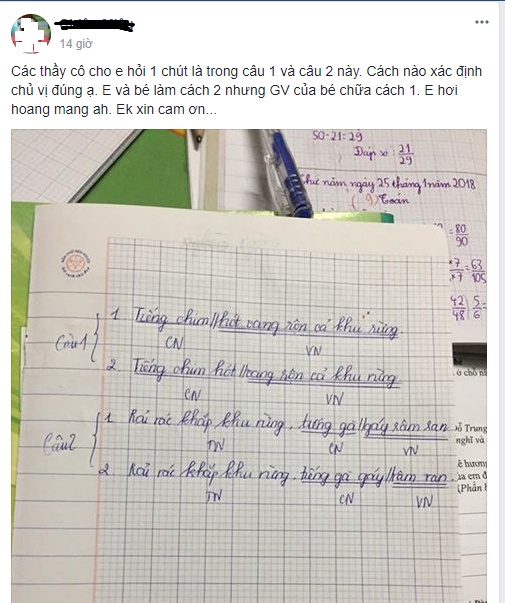 14 giờ
Các thầy cô cho e hỏi 1 chút là trong câu 1 và câu 2 này. Cách nào xác định
chủ vị đúng ạ. E và bé làm cách 2 nhưng GV của bé chữa cách 1. E hơi
hoang mang ah. Ek xin cam ơn...
50-21=29
Đáp số: 21/29
Thứ năm, ngày 25 tháng 1 năm 2018
Toán
80/90
63/105
42/48 5/6
Câu 1
1 Tiếng chim//hót vang rộn cả khu rừng
CN VN
2. Tiếng chim hót//vang rộn cả khu rừng
CN VN
Câu 2
1. Rải rác khắp khu rừng, tiếng gà//gáy râm ran
TN CN VN
2. Rải rác khắp khu rừng, tiếng gà gáy//râm ran.
TN CN VN
ở chỗ
Trung
nghĩ và
hương
của em
(Phần